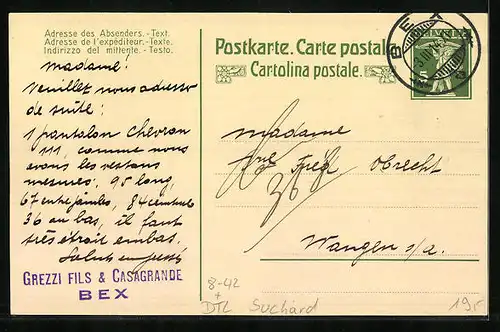 Adresse des Absenders.-Text.
Adresse de l'expéditeur.-Texte.
Indirizzo del mittente.-Testo.
Postkarte. Carte postale.
Cartolina postale.
BEX
HELVETIA
5
Madame!
Veuillez nous adresser
de suite:
1 pantalon Chevron
111, comme nous
avons les vestons
mesures: 95 long,
67 entrejambe, 84 ceinture
36 au bas, il faut
très étroit en bas.
Saluts empressés
GREZZI FILS & CASAGRANDE
BEX
Madame
Obrecht
36
Wangen s/a.
8-42
+
DTL Suchard